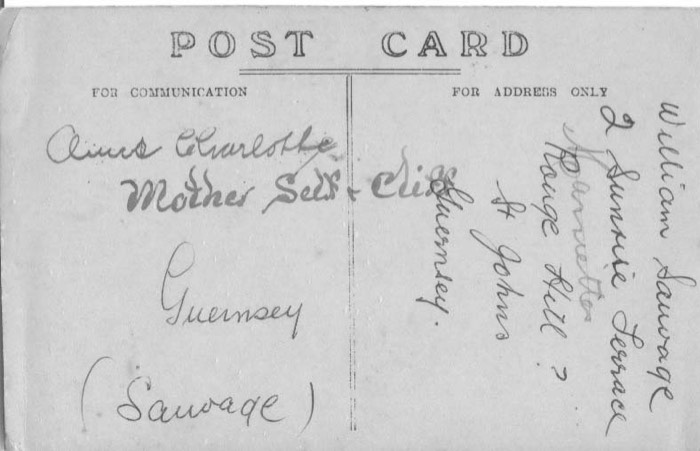 POST CARD
FOR COMMUNICATION
Aunt Charlotte
Mother Self & Cliff
Guernsey
(Sauvage)
FOR ADDRESS ONLY
William Sauvage
2 Sunrise Terrace
Rouge Hill ?
St Johns
Guernsey.